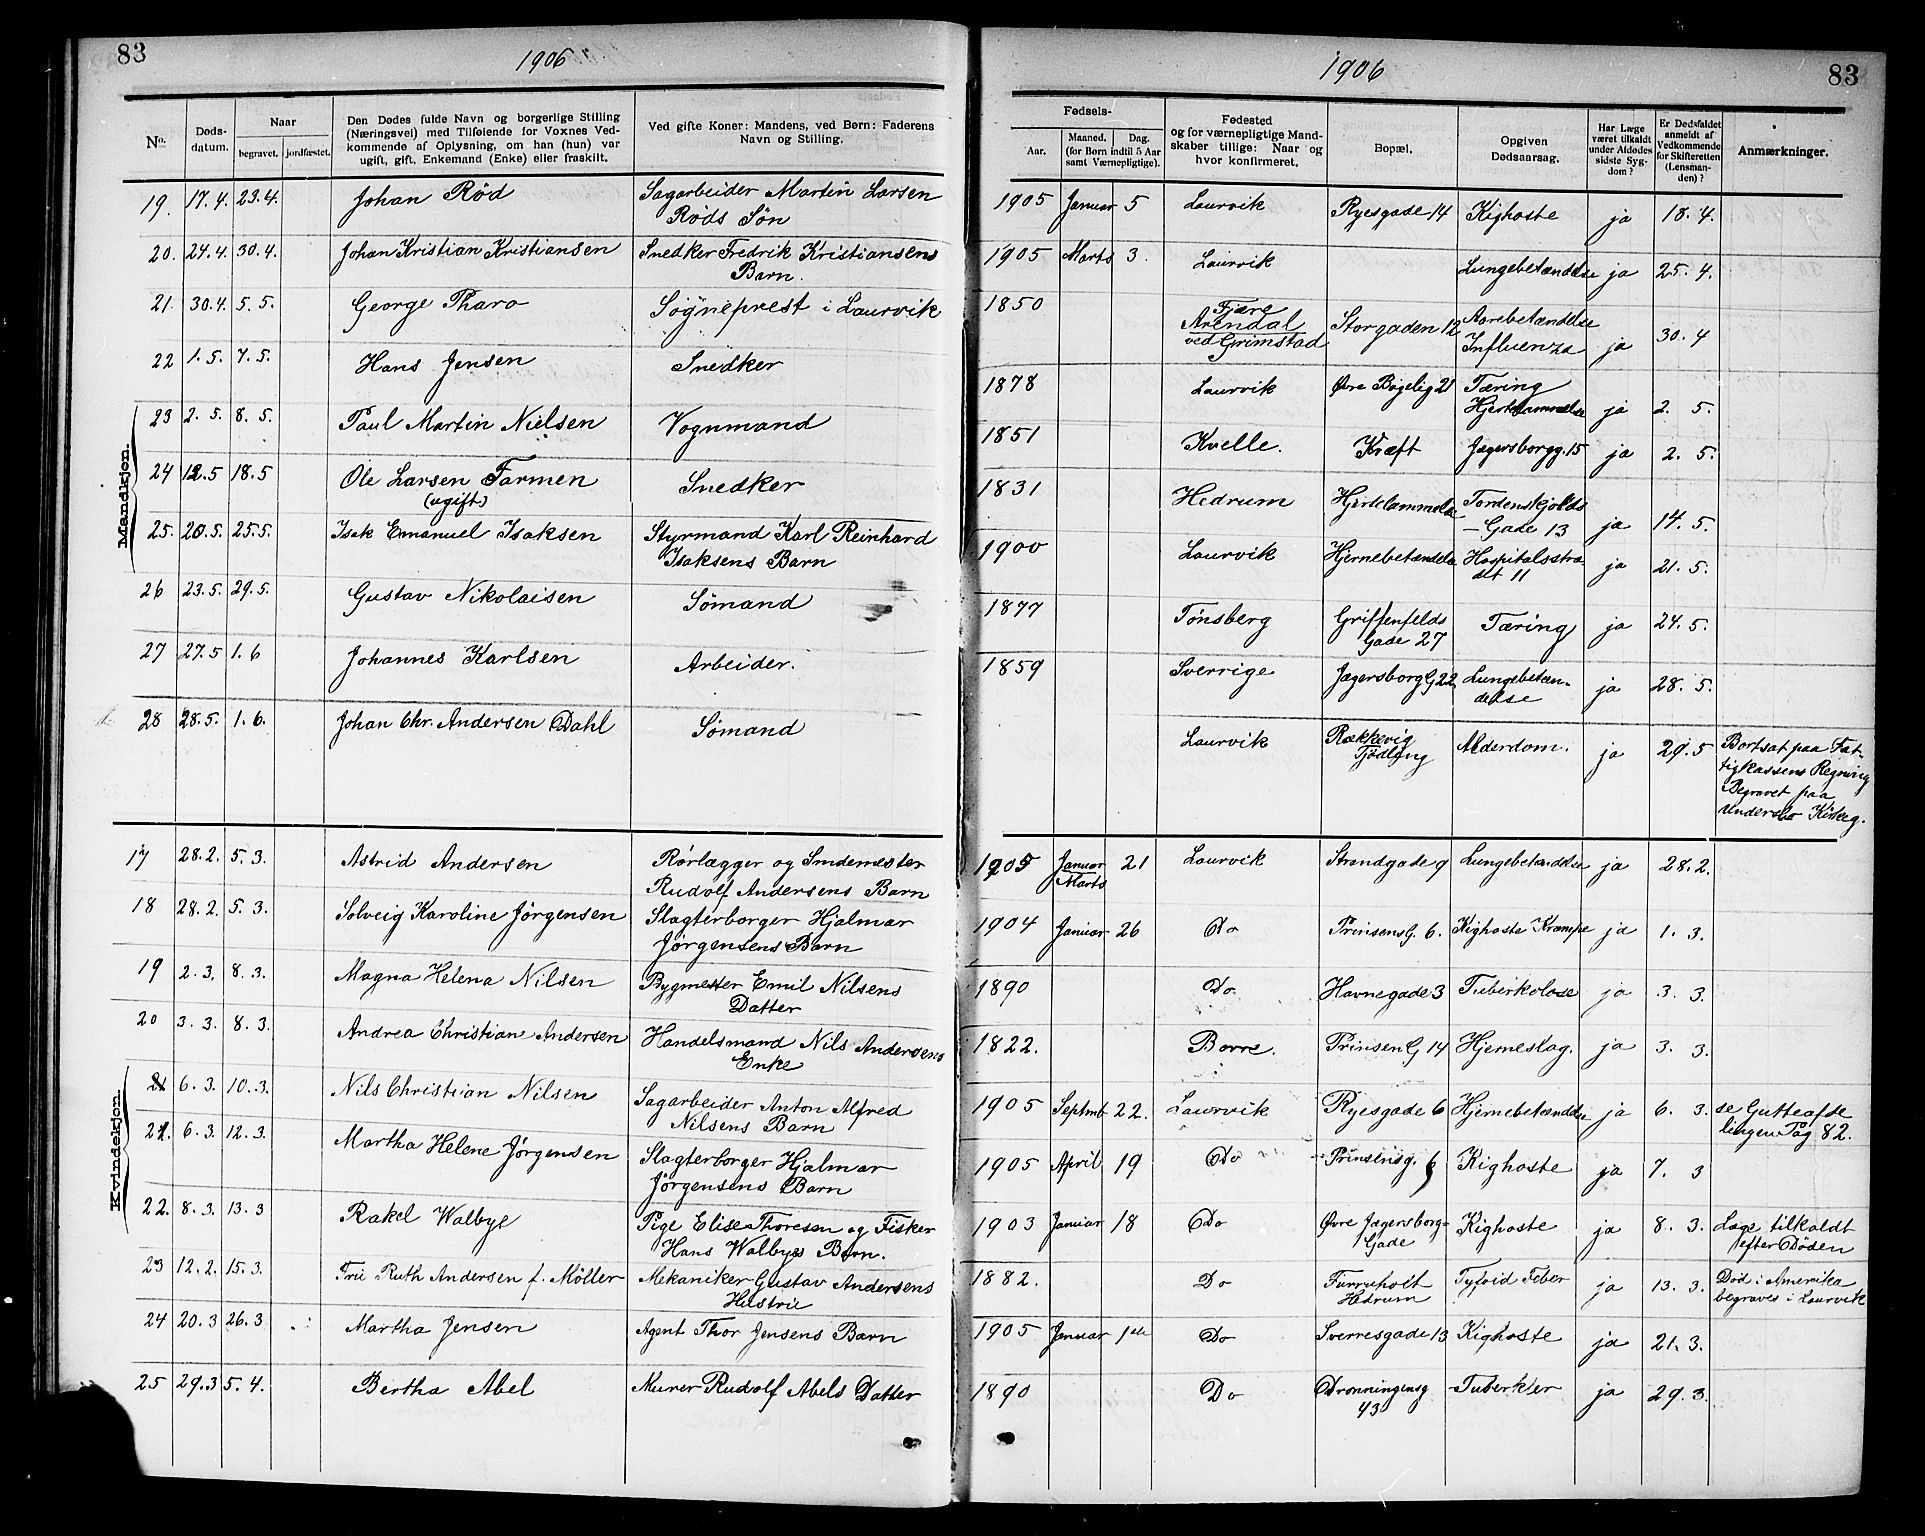 83
1906
No.
Døds-
datum.
Naar
begravet.
jordfæstet.
Den Dødes fulde Navn og borgerlige Stilling
(Næringsvei) med Tilføiende for Voxnes Ved-
kommende af Oplysning, om han (hun) var
ugift, gift, Enkemand (Enke) eller fraskilt.
Ved gifte Koner: Mandens, ved Børn: Faderens
Navn og Stilling.
Mandkjøn.
19. 17. 4. 23. 4. Johan Rød Sagarbeider Martin Larsen
Røds Søn
20. 24. 4. 30. 4. Johan Kristian Kristiansen Snedker Fredrik Kristiansens
Barn.
21. 30. 4. 5. 5. George Tharo Sogneprest i Laurvik
22 1. 5. 7. 5. Hans Jensen Snedker
23 2. 5. 8. 5. Paul Martin Nielsen Vognmand
24 12. 5 18. 5 Ole Larsen Farmen Snedker
(ugift)
25. 20. 5. 25. 5. Isak Emanuel Isaksen Styrmand Karl Reinhard
Isaksens Barn
26 23. 5. 29. 5. Gustav Nikolaisen Sømand
27 27. 5 1. 6 Johannes Karlsen Arbeider.
28 28. 5. 1. 6. Johan Chr. Andersen Dahl Sømand
Kvindekjøn.
17 28. 2. 5. 3. Astrid Andersen Rørlægger og Smedemester
Rudolf Andersens Barn
18 28. 2. 5. 3. Solveig Karoline Jørgensen Slagterborger Hjalmar
Jørgensens Barn
19 2. 3. 8. 3. Magna Helena Nilsen Bygmester Emil Nilsens
Datter
20 3. 3. 8. 3. Andrea Christian Andersen Handelsmand Nils Andersens
Enke
21 6. 3. 10. 3. Nils Christian Nilsen Sagarbeider Anton Alfred
Nilsens Barn
21. 6. 3. 12. 3. Martha Helene Jørgensen Slagterborger Hjalmar
Jørgensens Barn
22. 8. 3. 13. 3 Rakel Walbye Pige Elise Thoresen og Fisker
Hans Walbyes Barn.
23 12. 2. 15. 3. Frue Ruth Andersen f. Møller Mekaniker Gustav Andersens
Hustru
24 20. 3 26. 3 Martha Jensen Agent Thor Jensens Barn
25 29. 3 5. 4. Bertha Abel Murer Rudolf Abels Datter
1906
83
Fødsels-
Aar.
Maaned. Dag.
(for Børn indtil 5 Aar
samt Værnepligtige).
Fødested
og for værnepligtige Mand-
skaber tillige: Naar og
hvor konfirmeret.
Bopæl.
Opgiven
Dødsaarsag.
Har Læge
været tilkaldt
under Afdødes
sidste Syg-
dom?
Er Dødsfaldet
anmeldt af
Vedkommende
for Skifteretten
(Lensman-
den)?
Anmærkninger.
1905 Januar 5 Laurvik Ryesgade 14 Kighoste ja 18. 4.
1905 Marts 3. Laurvik Lungebetændelse ja 25. 4.
1850 Fjære
Arendal
ved Grimstad Storgaden 12 Aarebetændelse
Influenza ja 30. 4
1878 Laurvik Øvre Bøgelig 21 Tæring
Hjertelammelse ja 2. 5.
1851 Kvelle. Kræft Jægersborgg. 15 ja 2. 5.
1831 Hedrum Hjertelammelse Tordenskjolds
Gade 13 ja 14. 5.
1900 Laurvik Hjernebetændelse Hospitalsstræ-
det 11 ja 21. 5.
1877 Tønsberg Griffenfelds
Gade 27 Tæring ja 24. 5.
1859 Sverrige Jægersborg G 22 Lungebetæn-
delse ja 28. 5.
Laurvik Rækkevig
Tjødling Alderdom. ja 29. 5 Bortsat paa Fat-
tigkassens Regning
Begravet paa
Undersbo Kirkeg.
1905 Januar
Marts 21 Laurvik Strandgade 9 Lungebetændelse ja 28. 2.
1904 Januar 26 Do Prinsens G. 6. Kighoste Krampe ja 1. 3.
1890 Do Havnegade 3 Tuberkolose ja 3. 3.
1822. Borre. Prinsen G 14 Hjerneslag. ja 3. 3.
1905 Septmb 22. Laurvik Ryesgade 6 Hjernebetændelse ja 6. 3. se Gutteafde
lingen Pag 82.
1905 April 19 Do Prinsensg. 6 Kighoste ja 7. 3
1903 Januar 18 Do Øvre Jægersborg-
Gade Kighoste ja 8. 3. Læge tilkaldt
efter Døden
1882. Do Furruholt
Hedrum Tyfoid Feber ja 13. 3. Død i Amerika
begraves i Laurvik
1905 Januar 1ste Do Sverresgade 13 Kighoste ja 21. 3.
1890 Do Dronningensg
43 Tuberkler ja 29. 3.